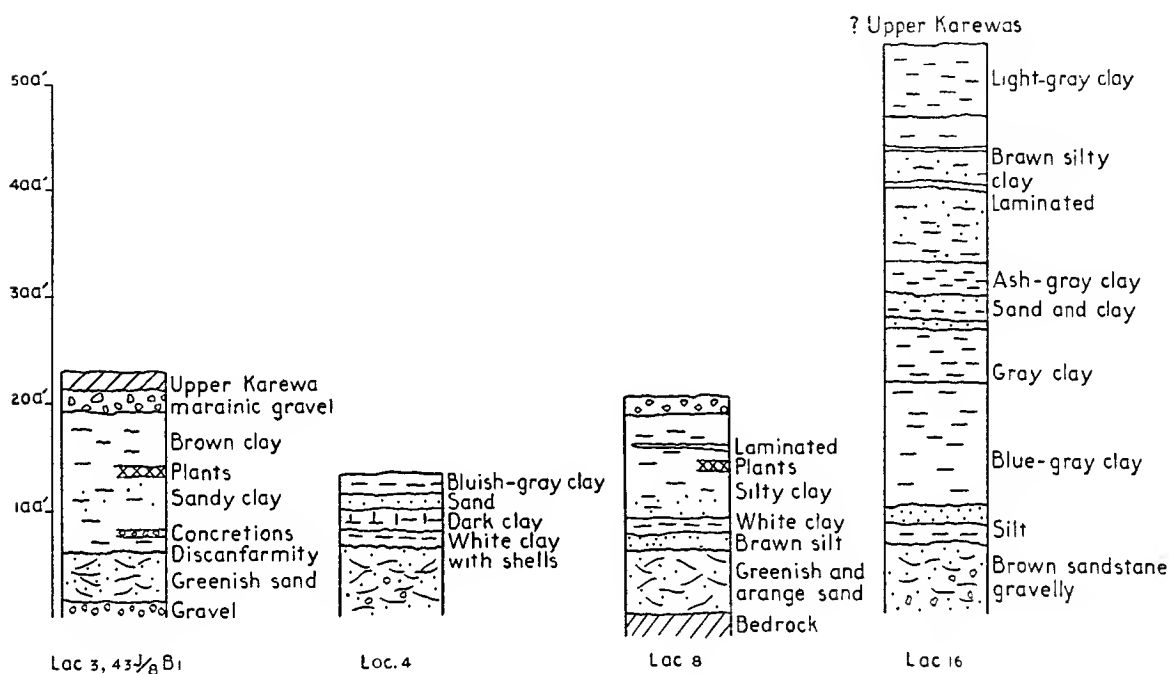 ? Upper Karewas
5aa'
4aa'
3aa'
2aa'
1aa'
Upper Karewa
marainic gravel
Brown clay
Plants
Sandy clay
Concretions
Discanfarmity
Greenish sand
Gravel
Lac 3, 43J/8 B1
Bluish-gray clay
Sand
Dark clay
White clay
with shells
Loc. 4
Laminated
Plants
Silty clay
White clay
Brown silt
Greenish and
arange sand
Bedrock
Lac 8
Light-gray clay
Brawn silty
clay
Laminated
Ash-gray clay
Sand and clay
Gray clay
Blue-gray clay
Silt
Brown sandstane
gravelly
Lac 16